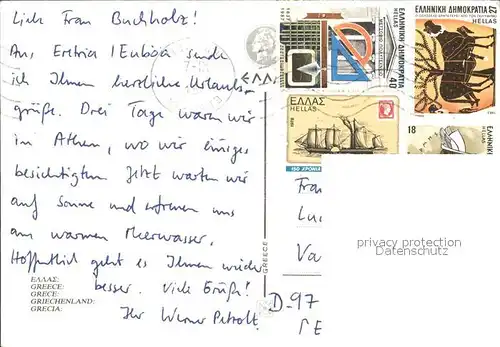 Liebe Frau Buchholz!
Aus Eretria / Euböa sende
ich Ihnen herzliche Urlaubs-
grüße. Drei Tage waren wir
in Athen, wo wir einiges
besichtigten. Jetzt warten wir
auf Sonne und erfreuen uns
am warmen Meerwasser.
Hoffentlich geht es Ihnen wieder
besser. Viele Grüße!
Ihr Werner
ΕΛΛΑΣ:
GREECE:
GRECE:
GRIECHENLAND:
GRECIA:
GREECE
ΕΛΛΗΝΙΚΗ ΔΗΜΟΚΡΑΤΙΑ
HELLAS
40
ΕΛΛΗΝΙΚΗ ΔΗΜΟΚΡΑΤΙΑ 27
HELLAS
ΕΛΛΑΣ
HELLAS
150 ΧΡΟΝΙΑ
18
ΕΛΛΗΝΙΚΗ
Fra
Lu
Va
D-97
privacy protection
VIEWCARDS